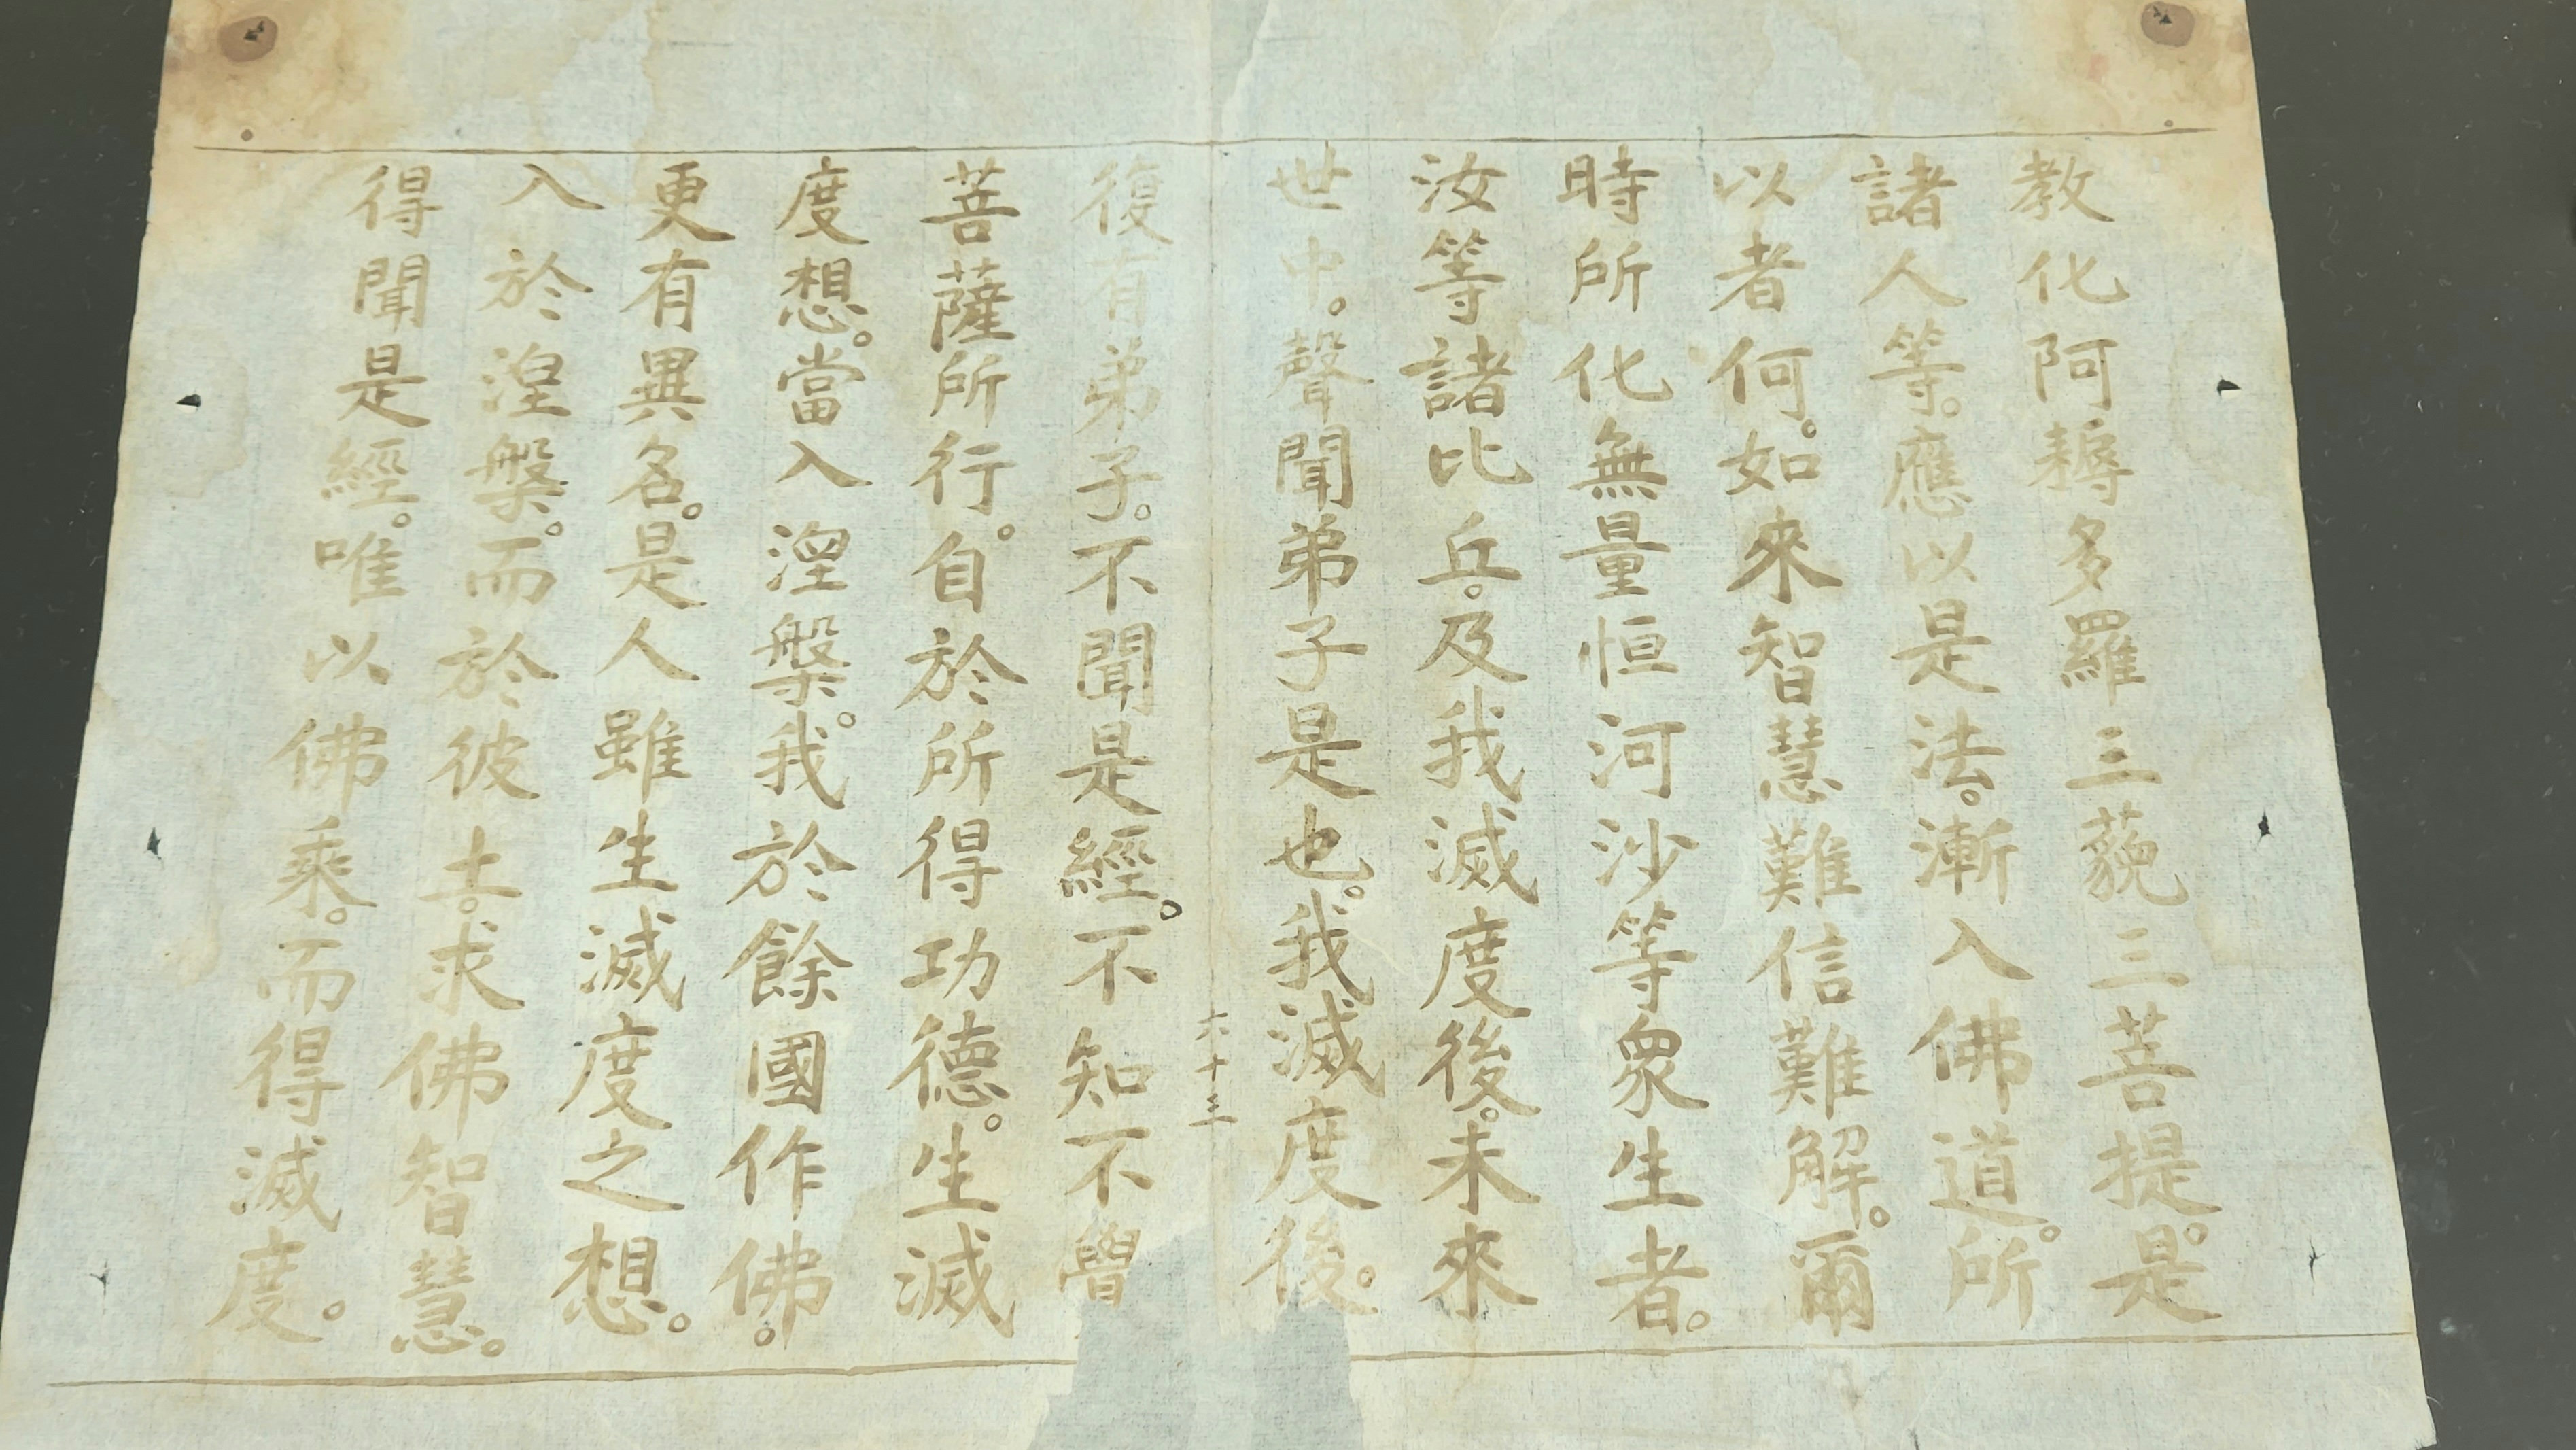 教化阿耨多羅三藐三菩提。是
諸人等。應以是法。漸入佛道。所
以者何。如來智慧難信難解。爾
時所化無量恒河沙等眾生者。
汝等諸比丘。及我滅度後。未來
世中。聲聞弟子是也。我滅度後。
六十三
復有弟子。不聞是經。不知不曾
菩薩所行。自於所得功德。生滅
度想。當入涅槃。我於餘國作佛。
更有異名。是人雖生滅度之想。
入於涅槃。而於彼土。求佛智慧。
得聞是經。唯以佛乘。而得滅度。